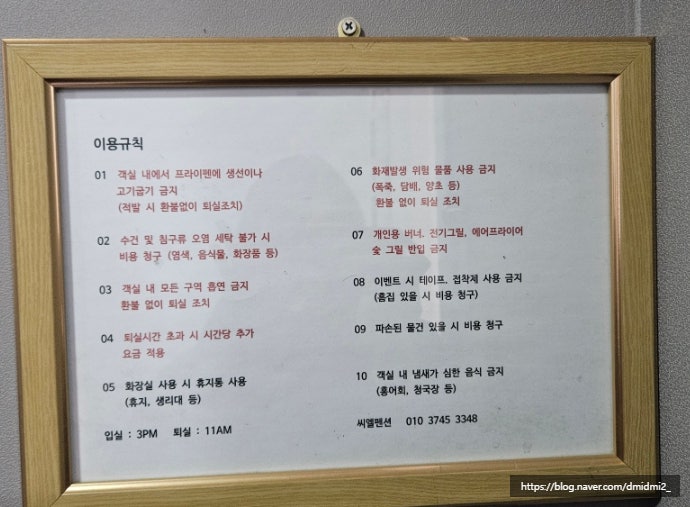 이용규칙
01 객실 내에서 프라이펜에 생선이나
고기굽기 금지
(적발 시 환불없이 퇴실조치)
02 수건 및 침구류 오염 세탁 불가 시
비용 청구 (염색, 음식물, 화장품 등)
03 객실 내 모든 구역 흡연 금지
환불 없이 퇴실 조치
04 퇴실시간 초과 시 시간당 추가
요금 적용
05 화장실 사용 시 휴지통 사용
(휴지, 생리대 등)
입실 : 3PM 퇴실 : 11AM
06 화재발생 위험 물품 사용 금지
(폭죽, 담배, 양초 등)
환불 없이 퇴실 조치
07 개인용 버너, 전기그릴, 에어프라이어
숯 그릴 반입 금지
08 이벤트 시 테이프, 접착제 사용 금지
(흠집 있을 시 비용 청구)
09 파손된 물건 있을 시 비용 청구
10 객실 내 냄새가 심한 음식 금지
(홍어회, 청국장 등)
씨엘펜션 010 3745 3348
https://blog.naver.com/dmidmi2_